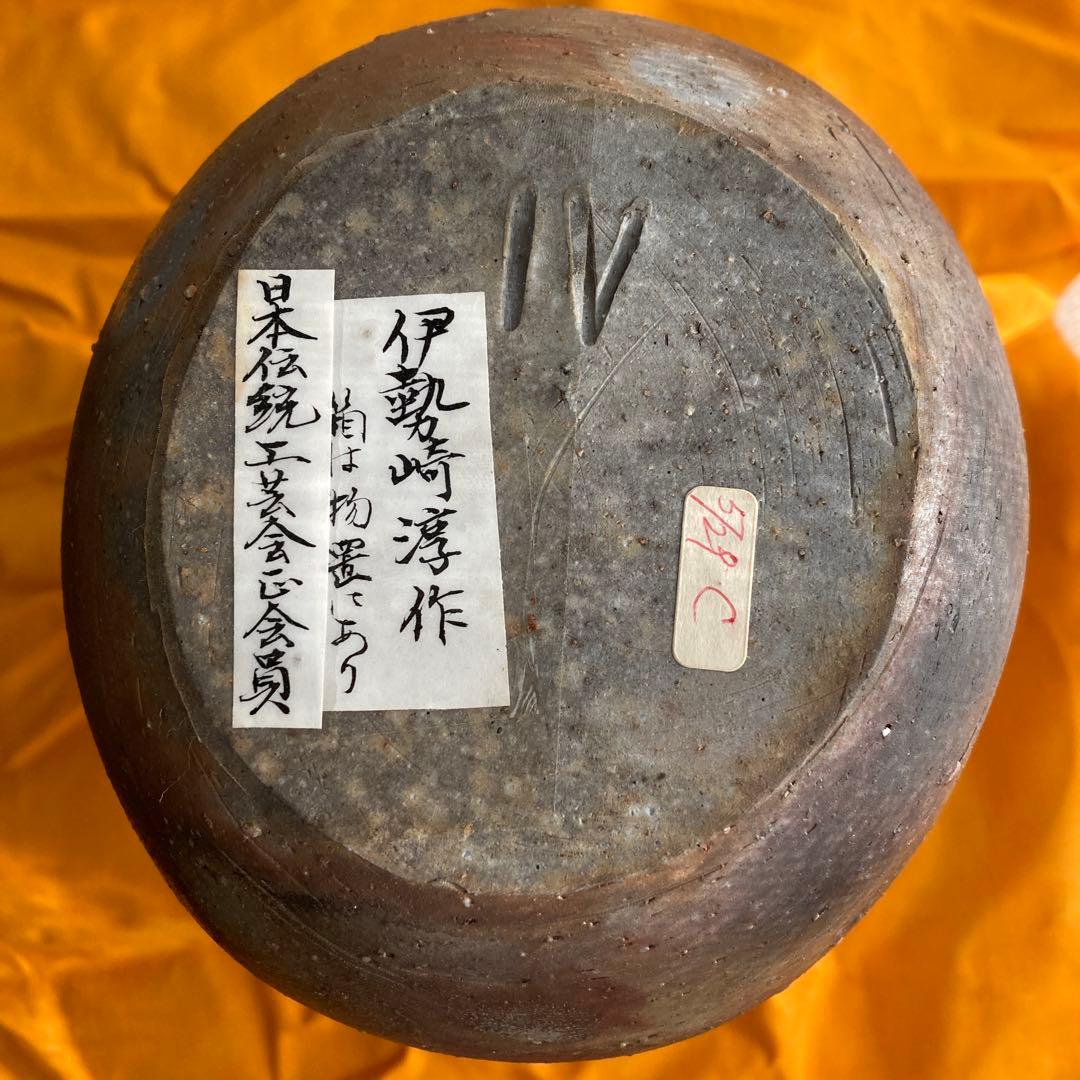 伊勢崎淳作
箱は物置にあり
日本伝統工芸会正会員